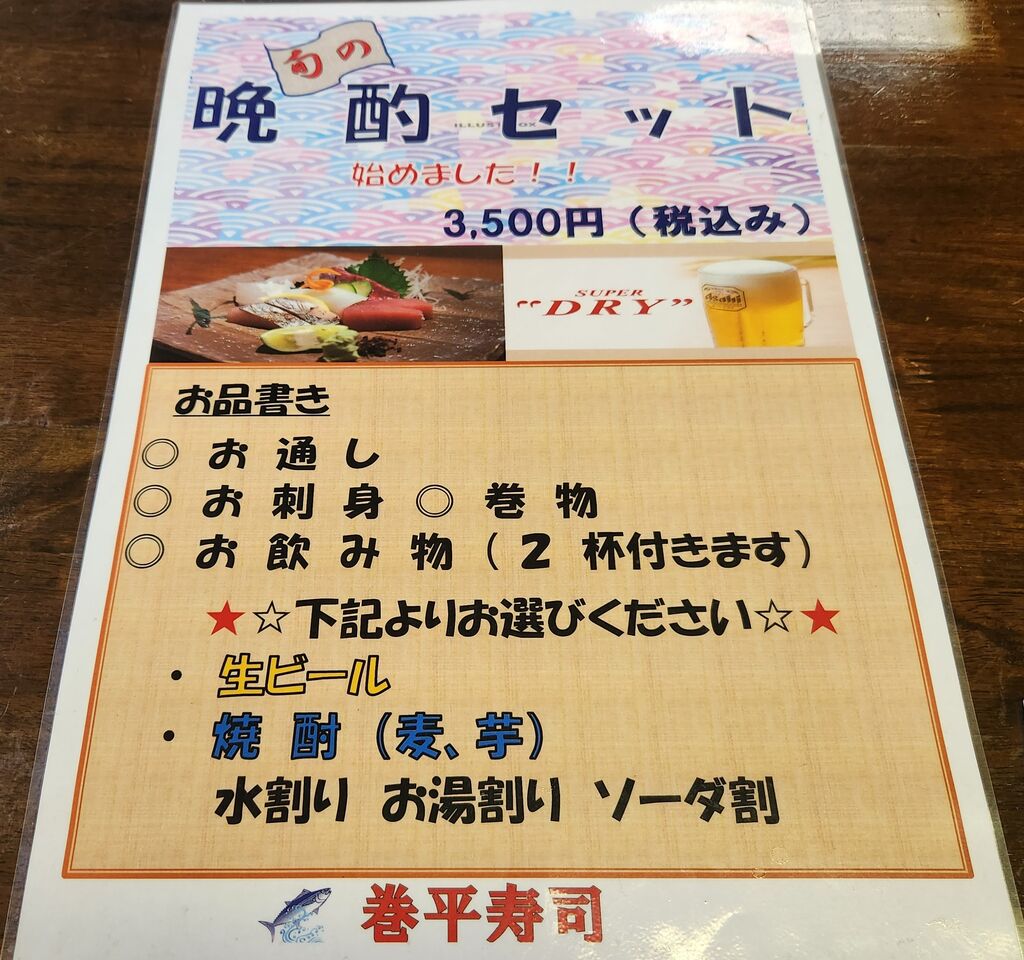 旬の
晩酌セット
ILLUST BOX
始めました！！
3,500円（税込み）
SUPER
“DRY”
Asahi
お品書き
◎ お通し
◎ お刺身 ◎ 巻物
◎ お飲み物（２杯付きます）
★☆下記よりお選びください☆★
・ 生ビール
・ 焼酎（麦、芋）
水割り お湯割り ソーダ割
巻平寿司